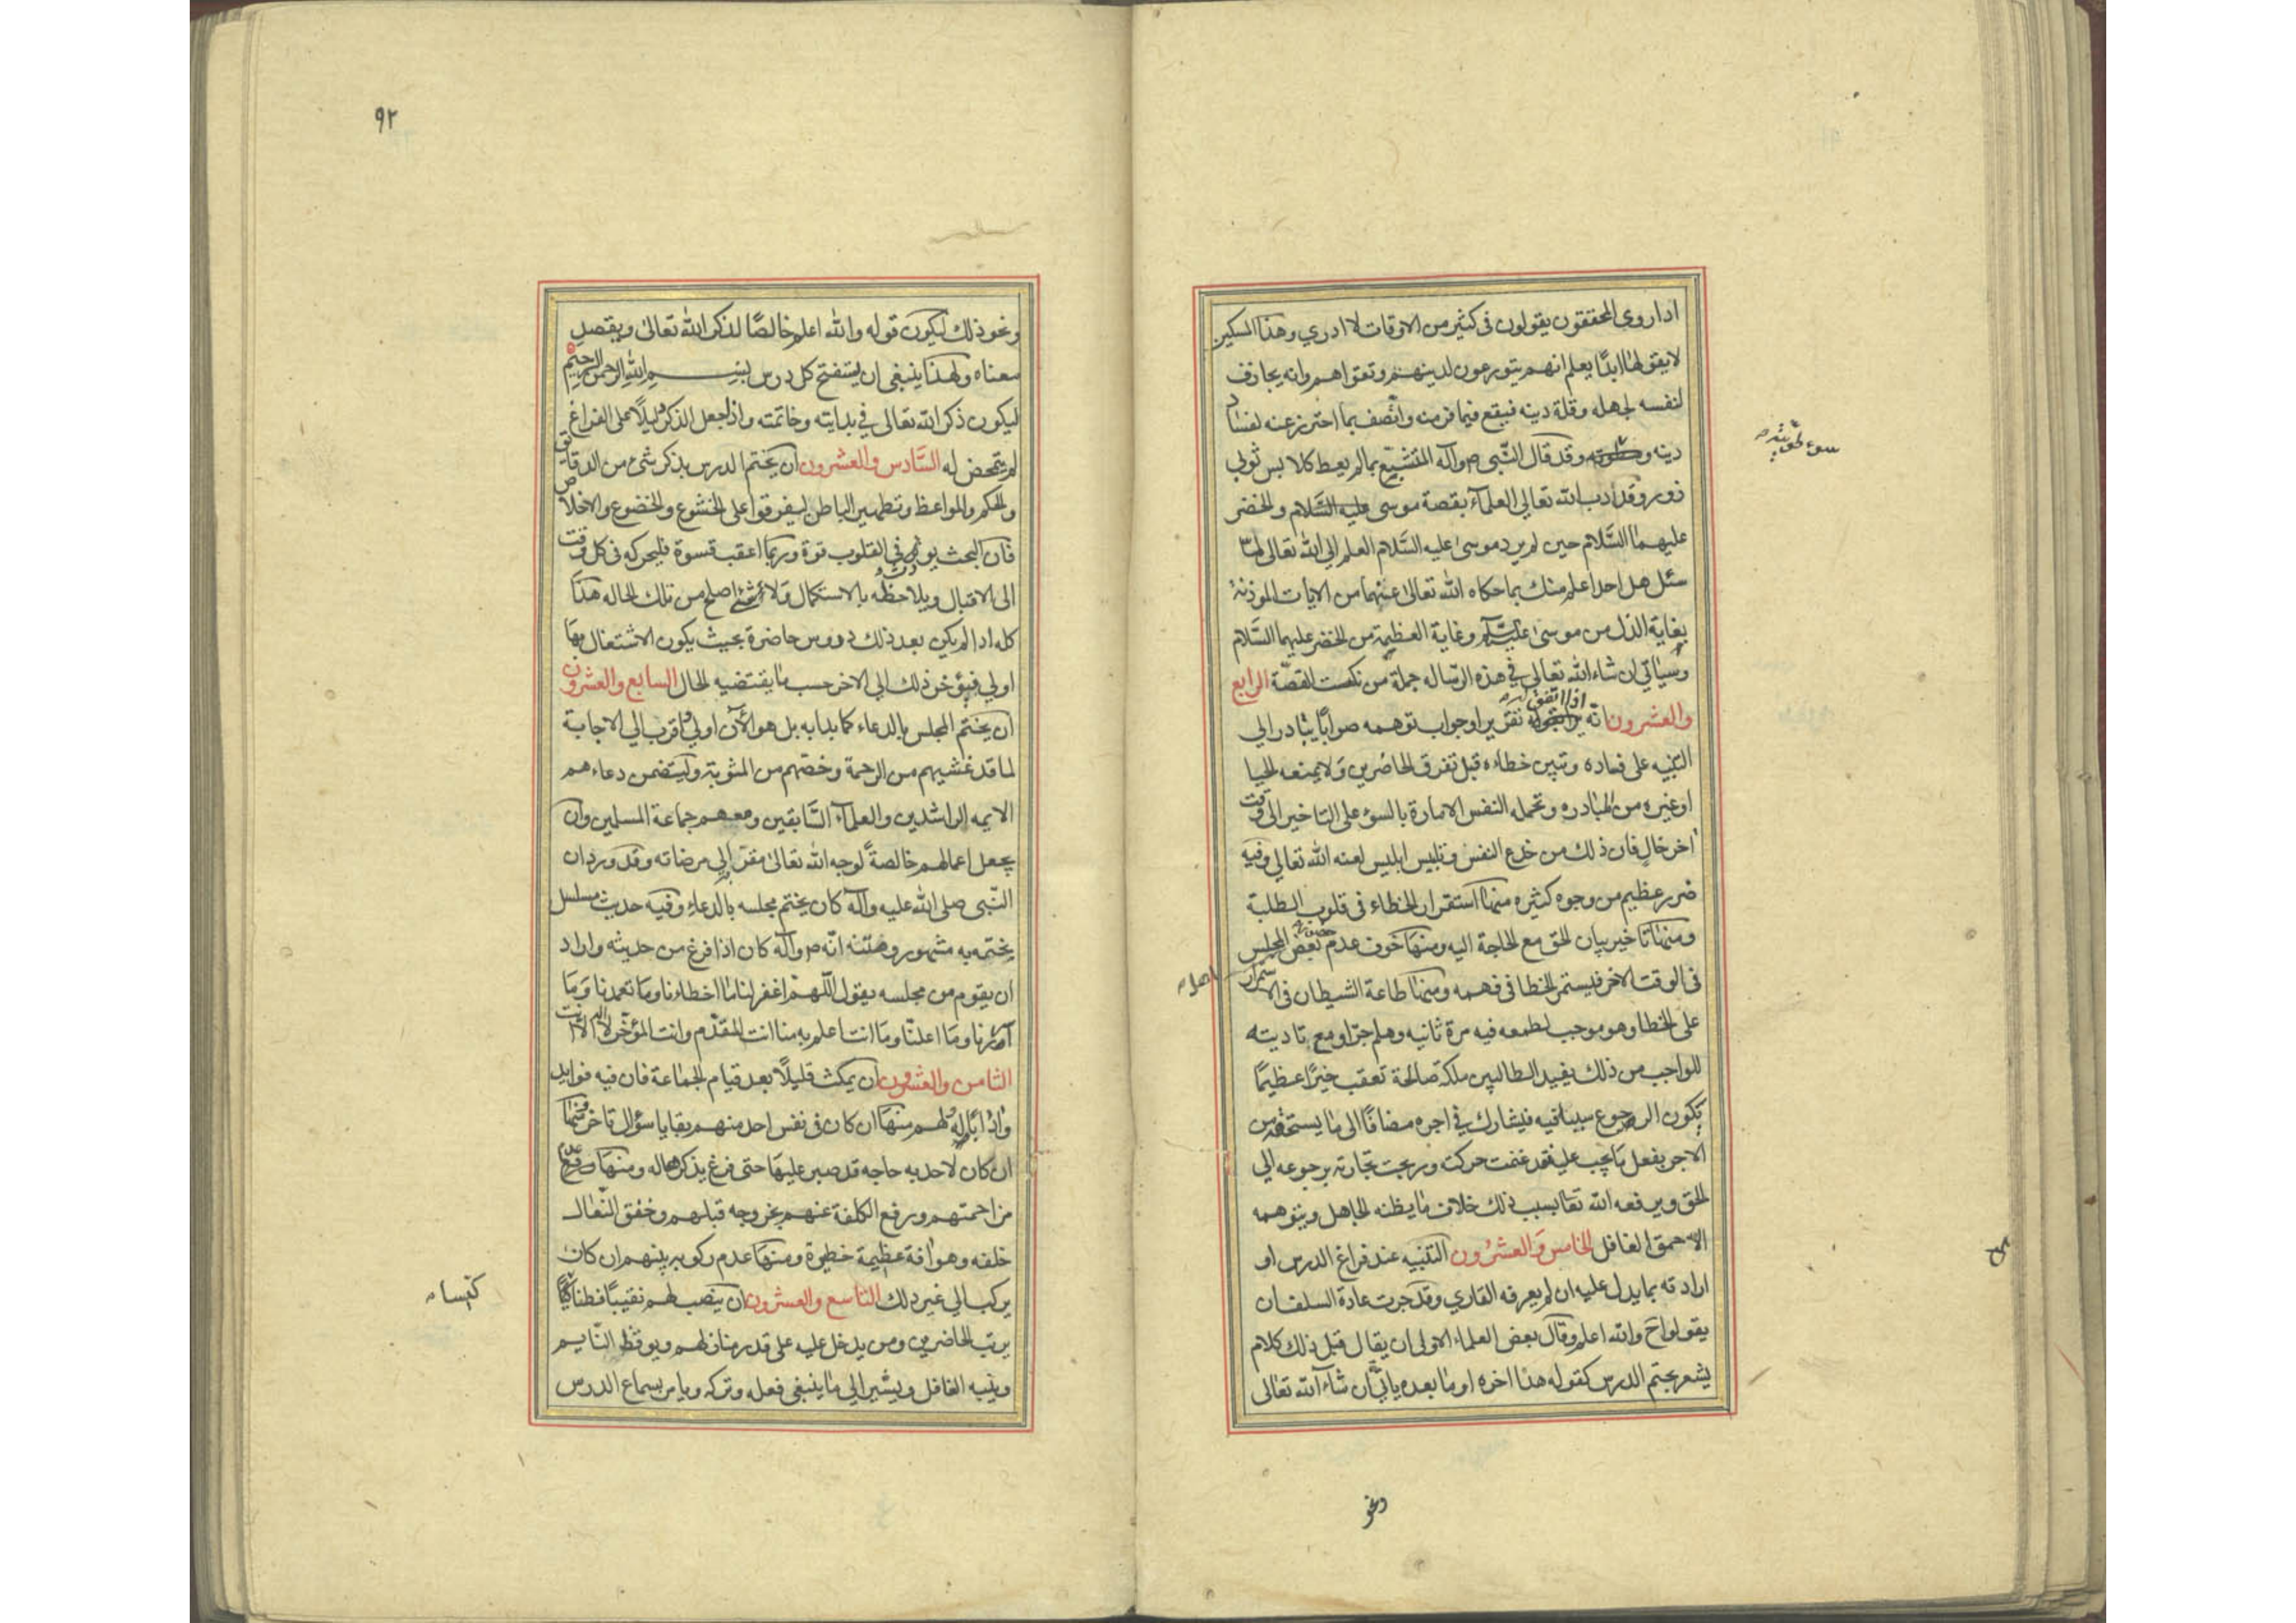 اذا روي المحققون يقولون في كثير من الاوقات لا ادري وهذا المسكين
لا يقولها ابدًا يعلم انهم يتورعون لدينهم وتقواهم وانه يجازف
لنفسه لجهله وقلة دينه فيقع فيما فر منه واتصف بما احترز عنه لفساد
دينه و وقد قال النّبي ص وآله المتشبّع بما لم يعط كلابس ثوبي
سوء طويته
زور وقد ادب الله تعالي العلمآء بقصة موسى عليه السَّلام والخضر
عليهما السَّلام حين لم يرد موسى عليه السَّلام العلم الى الله تعالى لمّا
سئل هل احد اعلم منك بما حكاه الله تعالى عنهما من الايات المؤذنة
بغاية الذل من موسى عليه السّلم وغاية العظمة من الخضر عليهما السَّلام
وسياتي ان شاء الله تعالى في هذه الرّساله جملة من نكت القصّة الرابع
والعشرون انّه اذا اتفق له تقرير او جواب توهمه صوابًا يبادر الي
التنبيه على فساده وتبين خطاءه قبل تفرق الحاضرين ولا يمنعه الحيا
او غيره من المبادره وتحمله النفس الامارة بالسؤ على التاخير الى وقت
اخر خال فان ذلك من خدع النفس وتلبيس ابليس لعنه الله تعالى وفيه
ضرر عظيم من وجوه كثيره منها استقرار الخطاء في قلوب الطلبة
ومنها تاخير بيان الحق مع الحاجة اليه ومنها خوف عدم حضور بعض المجلس
في الوقت الاخر فيستمر الخطا في فهمه ومنها طاعة الشيطان في الاستمرار
على الخطا وهو موجب لطمعه فيه مرة ثانيه وهلم جرّا ومع تاديته
للواجب من ذلك يفيد الطالبين ملكة صالحة تعقب خيرًا عظيمًا
يكون الرجوع سببا فيه فيشارك في اجره مضافًا الى ما يستحقه من
الاجر بفعل ما يجب عليه فقد غنمت حركته وربحت تجارته برجوعه الى
الحق ويرفعه الله تعا بسبب ذلك خلاف ما يظنه الجاهل ويتوهمه
الاحمق الغافل الخامس والعشرون التنبيه عند فراغ الدرس او
ارادته بما يدل عليه ان لم يعرفه القاري وقد جرت عادة السلف ان
يقولوا ح والله اعلم وقال بعض العلماء الاولى ان يقال قبل ذلك كلام
يشعر بختم الدرس كقوله هذا اخره او ما بعده ياتي ان شاء الله تعالى
ونحو
٩٢
ونحو ذلك ليكون قوله والله اعلم خالصًا لذكر الله تعالى ويقصد
معناه ولهذا ينبغي ان يستفتح كل درس ببسم الله الرحمن الرحيم
ليكون ذكر الله تعالى في بدايته وخاتمته واذا جعل الذكر دليلًا على الفراغ
لم يتمحض له السَّادس والعشرون ان يختم الدرس بذكر شئ من الدقايق
والحكم والمواعظ وتطهير الباطن ليفرقوا على الخشوع والخضوع والاخلاص
فان البحث يورث في القلوب قوة وربما اعقب قسوة فليحركه في كل وقت
الى الاقبال ويلاحظه بالاستكمال ولا شئ اصلح من تلك الحاله هذا
كله اذا لم يكن بعد ذلك دروس حاضرة بحيث يكون الاشتغال بها
اولي فيؤخر ذلك الي الاخر حسب ما يقتضيه الحال السابع والعشرون
ان يختم المجلس بالدعاء كما بدا به بل هو الآن اولى واقرب الى الاجابة
لما قد غشيهم من الرحمة وخصّهم من المثوبة وليتضمن دعاءهم
الايمه الراشدين والعلمآء السّابقين ومعهم جماعة المسلمين وان
يجعل اعمالهم خالصةً لوجه الله تعالى مقربه الى مرضاته وقد ورد ان
النّبي صلى الله عليه وآله كان يختم مجلسه بالدعاء وفيه حديث مسلسل
يختمه به مشهور ومتنه انّه ص وآله كان اذا فرغ من حديثه واراد
ان يقوم من مجلسه يقول اللّهمّ اغفر لنا ما اخطاءنا وما تعمدنا وما
اسررنا وما اعلنّا وما انت اعلم به منا انت المقدّم وانت المؤخّر لا اله الا انت
الثامن والعشرون ان يمكث قليلًا بعد قيام الجماعة فان فيه فوايد
وادابًا له ولهم منها ان كان في نفس احد منهم بقايا سؤال تاخر ومنها
ان كان لاحد به حاجه قد صبر عليها حتى فرغ يذكرها له ومنها عدم
مزاحمتهم ورفع الكلفة عنهم بخروجه قبلهم وخفق النّعال
خلفه وهو افة عظيمة خطرة ومنها عدم ركوبه بينهم ان كان
يركب الي غير ذلك التاسع والعشرون ان ينصب لهم نقيبًا فطنا كيّسًا
كيسا
يرتب الحاضرين ومن يدخل عليه على قدر منازلهم ويوقظ النّايم
وينبه الغافل ويشير الي ما ينبغي فعله وتركه ويامر بسماع الدرس